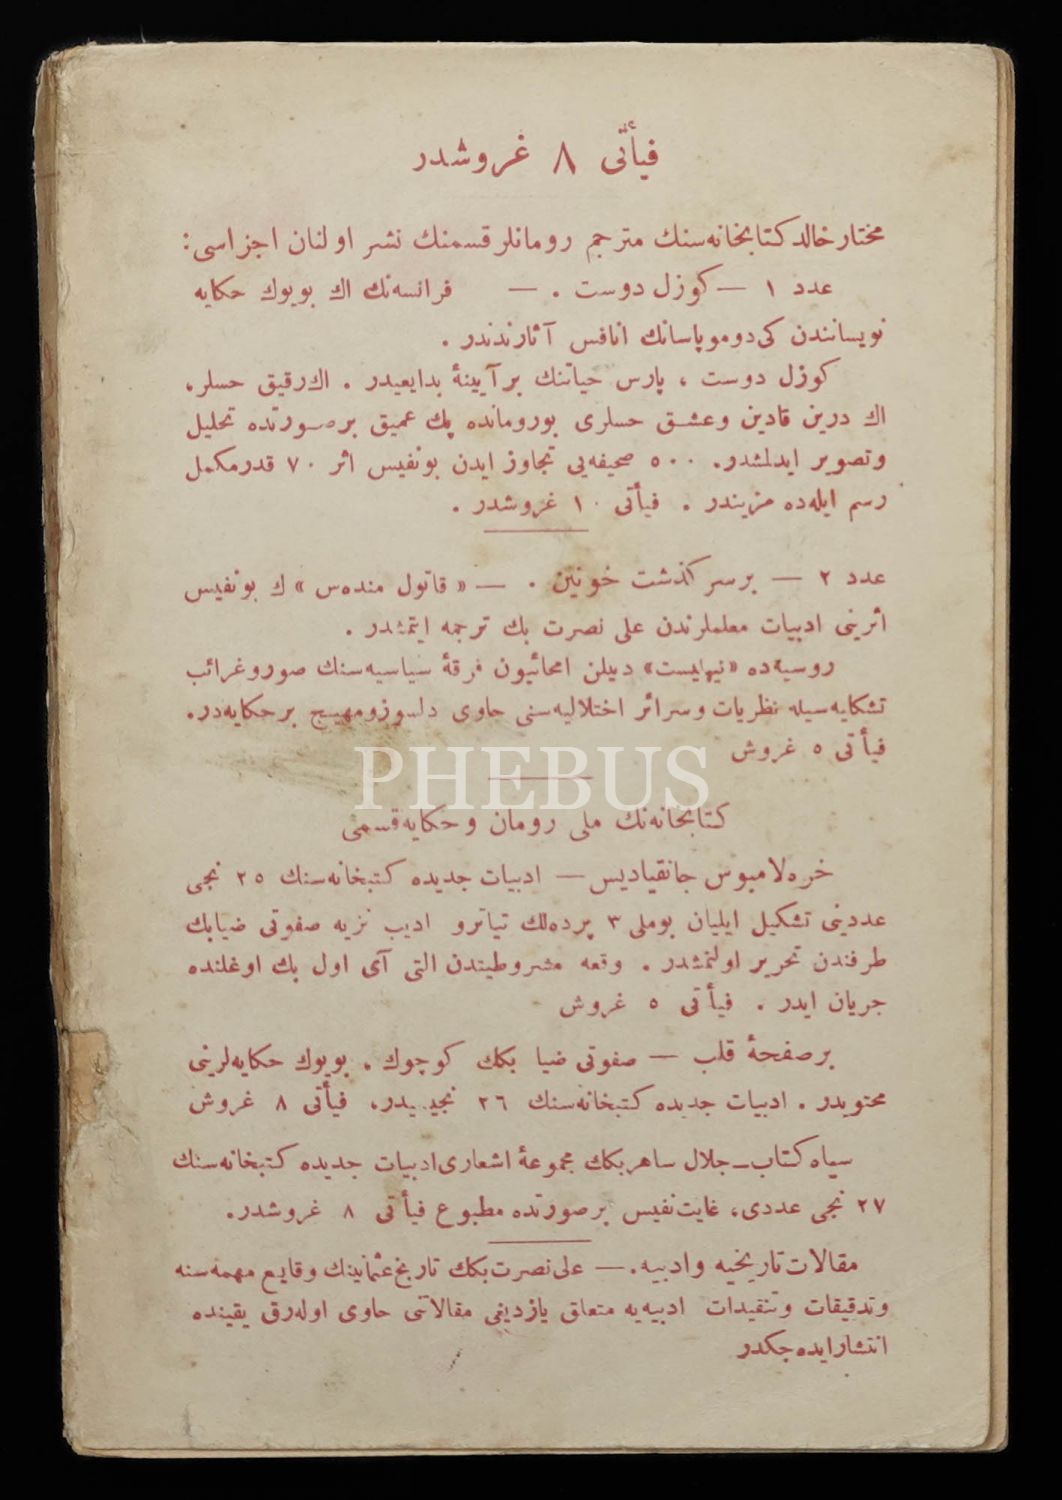 فيأتی ٨ غروشدر
مختار خالد كتابخانه‌سنك مترجم رومانلر قسمنك نشر اولنان اجزاسی :
عدد ١ — كوزل دوست . — فرانسه‌نك اك بويوك حكايه
نويسانندن كی دوموپاسانك انافس آثارندندر .
كوزل دوست ، پارس حياتنك برآيينهٔ بدايعيدر . اك رقيق حسلر ،
اك درين قادين وعشق حسلری بورومانده پك عميق برصورتده تحليل
وتصوير ايدلمشدر. ٥٠٠ صحيفه‌يی تجاوز ايدن بونفيس اثر ٧٠ قدرمكمل
رسم ايله‌ده مزيندر . فيأتی ١٠ غروشدر .
عدد ٢ — برسركذشت خونين . — « قاتول منده‌س » ك بونفيس
اثرينی ادبيات معلملرندن علی نصرت بك ترجمه ايتمشدر .
روسيه‌ده «نيهليست» دينلن امحائيون فرقهٔ سياسيه‌سنك صور وغرائب
تشكليه‌سيله نظريات وسرائر اختلاليه‌سنی حاوی دلسوزومهيج برحكايه‌در.
فيأتی ٥ غروش
PHEBUS
كتابخانه‌نك ملی رومان وحكايه قسمی
خره‌لامبوس جانقياديس — ادبيات جديده كتبخانه‌سنك ٢٥ نجی
عددينی تشكيل ايليان بوملی ٣ پرده‌لك تياترو اديب نزيه صفوتی ضيابك
طرفندن تحرير اولنمشدر . وقعه مشروطيتدن التی آی اول بك اوغلنده
جريان ايدر . فيأتی ٥ غروش
برصفحهٔ قلب — صفوتی ضيا بكك كوچوك ، بويوك حكايه‌لرينی
محتويدر . ادبيات جديده كتبخانه‌سنك ٢٦ نجيسيدر، فيأتی ٨ غروش
سياه كتاب — جلال ساهربكك مجموعهٔ اشعاری ادبيات جديده كتبخانه‌سنك
٢٧ نجی عددی، غايت نفيس برصورتده مطبوع فيأتی ٨ غروشدر.
مقالات تاريخيه وادبيه. — علی نصرت بكك تاريخ عثمانينك وقايع مهمه‌سنه
وتدقيقات وتنقيدات ادبيه‌يه متعلق يازديغی مقالاتی حاوی اوله‌رق يقينده
انتشارايده‌جكدر